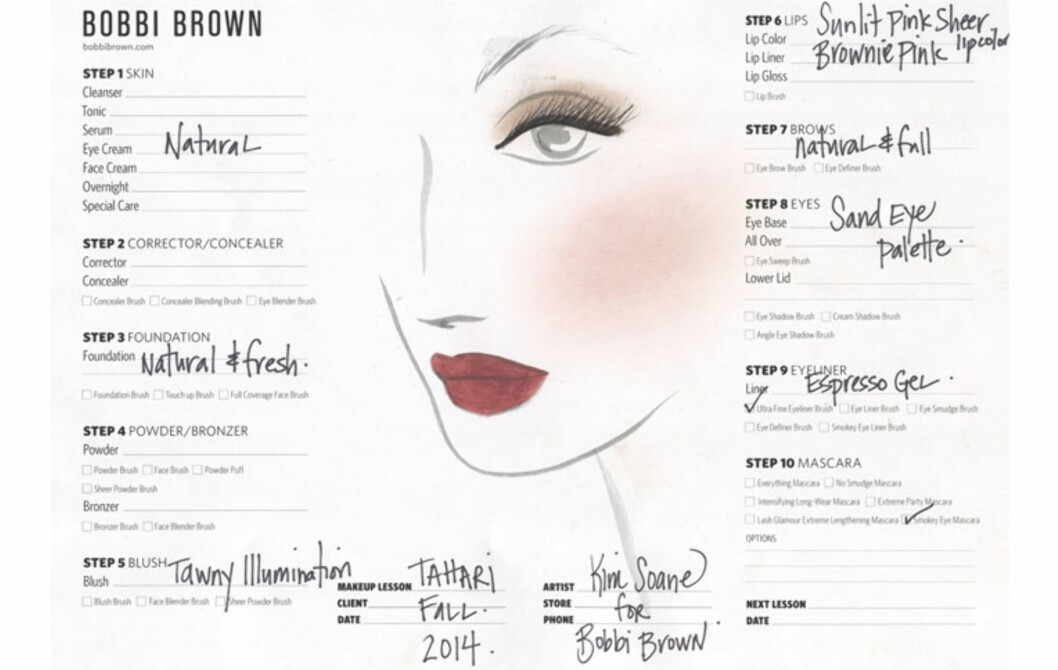 BOBBI BROWN
bobbibrown.com
STEP 1 SKIN
Cleanser
Tonic
Serum
Eye Cream Natural
Face Cream
Overnight
Special Care
STEP 2 CORRECTOR/CONCEALER
Corrector
Concealer
Concealer Brush Concealer Blending Brush Eye Blender Brush
STEP 3 FOUNDATION
Foundation Natural & fresh.
Foundation Brush Touch up Brush Full Coverage Face Brush
STEP 4 POWDER/BRONZER
Powder
Powder Brush Face Brush Powder Puff
Sheer Powder Brush
Bronzer
Bronzer Brush Face Blender Brush
STEP 5 BLUSH
Blush Tawny Illumination
Blush Brush Face Blender Brush Sheer Powder Brush
MAKEUP LESSON TAHARI
CLIENT FALL.
DATE 2014.
ARTIST Kim Soane
STORE for
PHONE Bobbi Brown.
STEP 6 LIPS Sunlit Pink Sheer
Lip Color lipcolor
Lip Liner Brownie Pink
Lip Gloss
Lip Brush
STEP 7 BROWS
natural & full
Eye Brow Brush Eye Definer Brush
STEP 8 EYES
Eye Base Sand Eye
All Over Palette.
Eye Sweep Brush
Lower Lid
Eye Shadow Brush Cream Shadow Brush
Angle Eye Shadow Brush
STEP 9 EYELINER
Liner Espresso Gel.
Ultra Fine Eyeliner Brush Eye Liner Brush Eye Smudge Brush
Eye Definer Brush Smokey Eye Liner Brush
STEP 10 MASCARA
Everything Mascara No Smudge Mascara
Intensifying Long-Wear Mascara Extreme Party Mascara
Lash Glamour Extreme Lengthening Mascara Smokey Eye Mascara
OPTIONS
NEXT LESSON
DATE